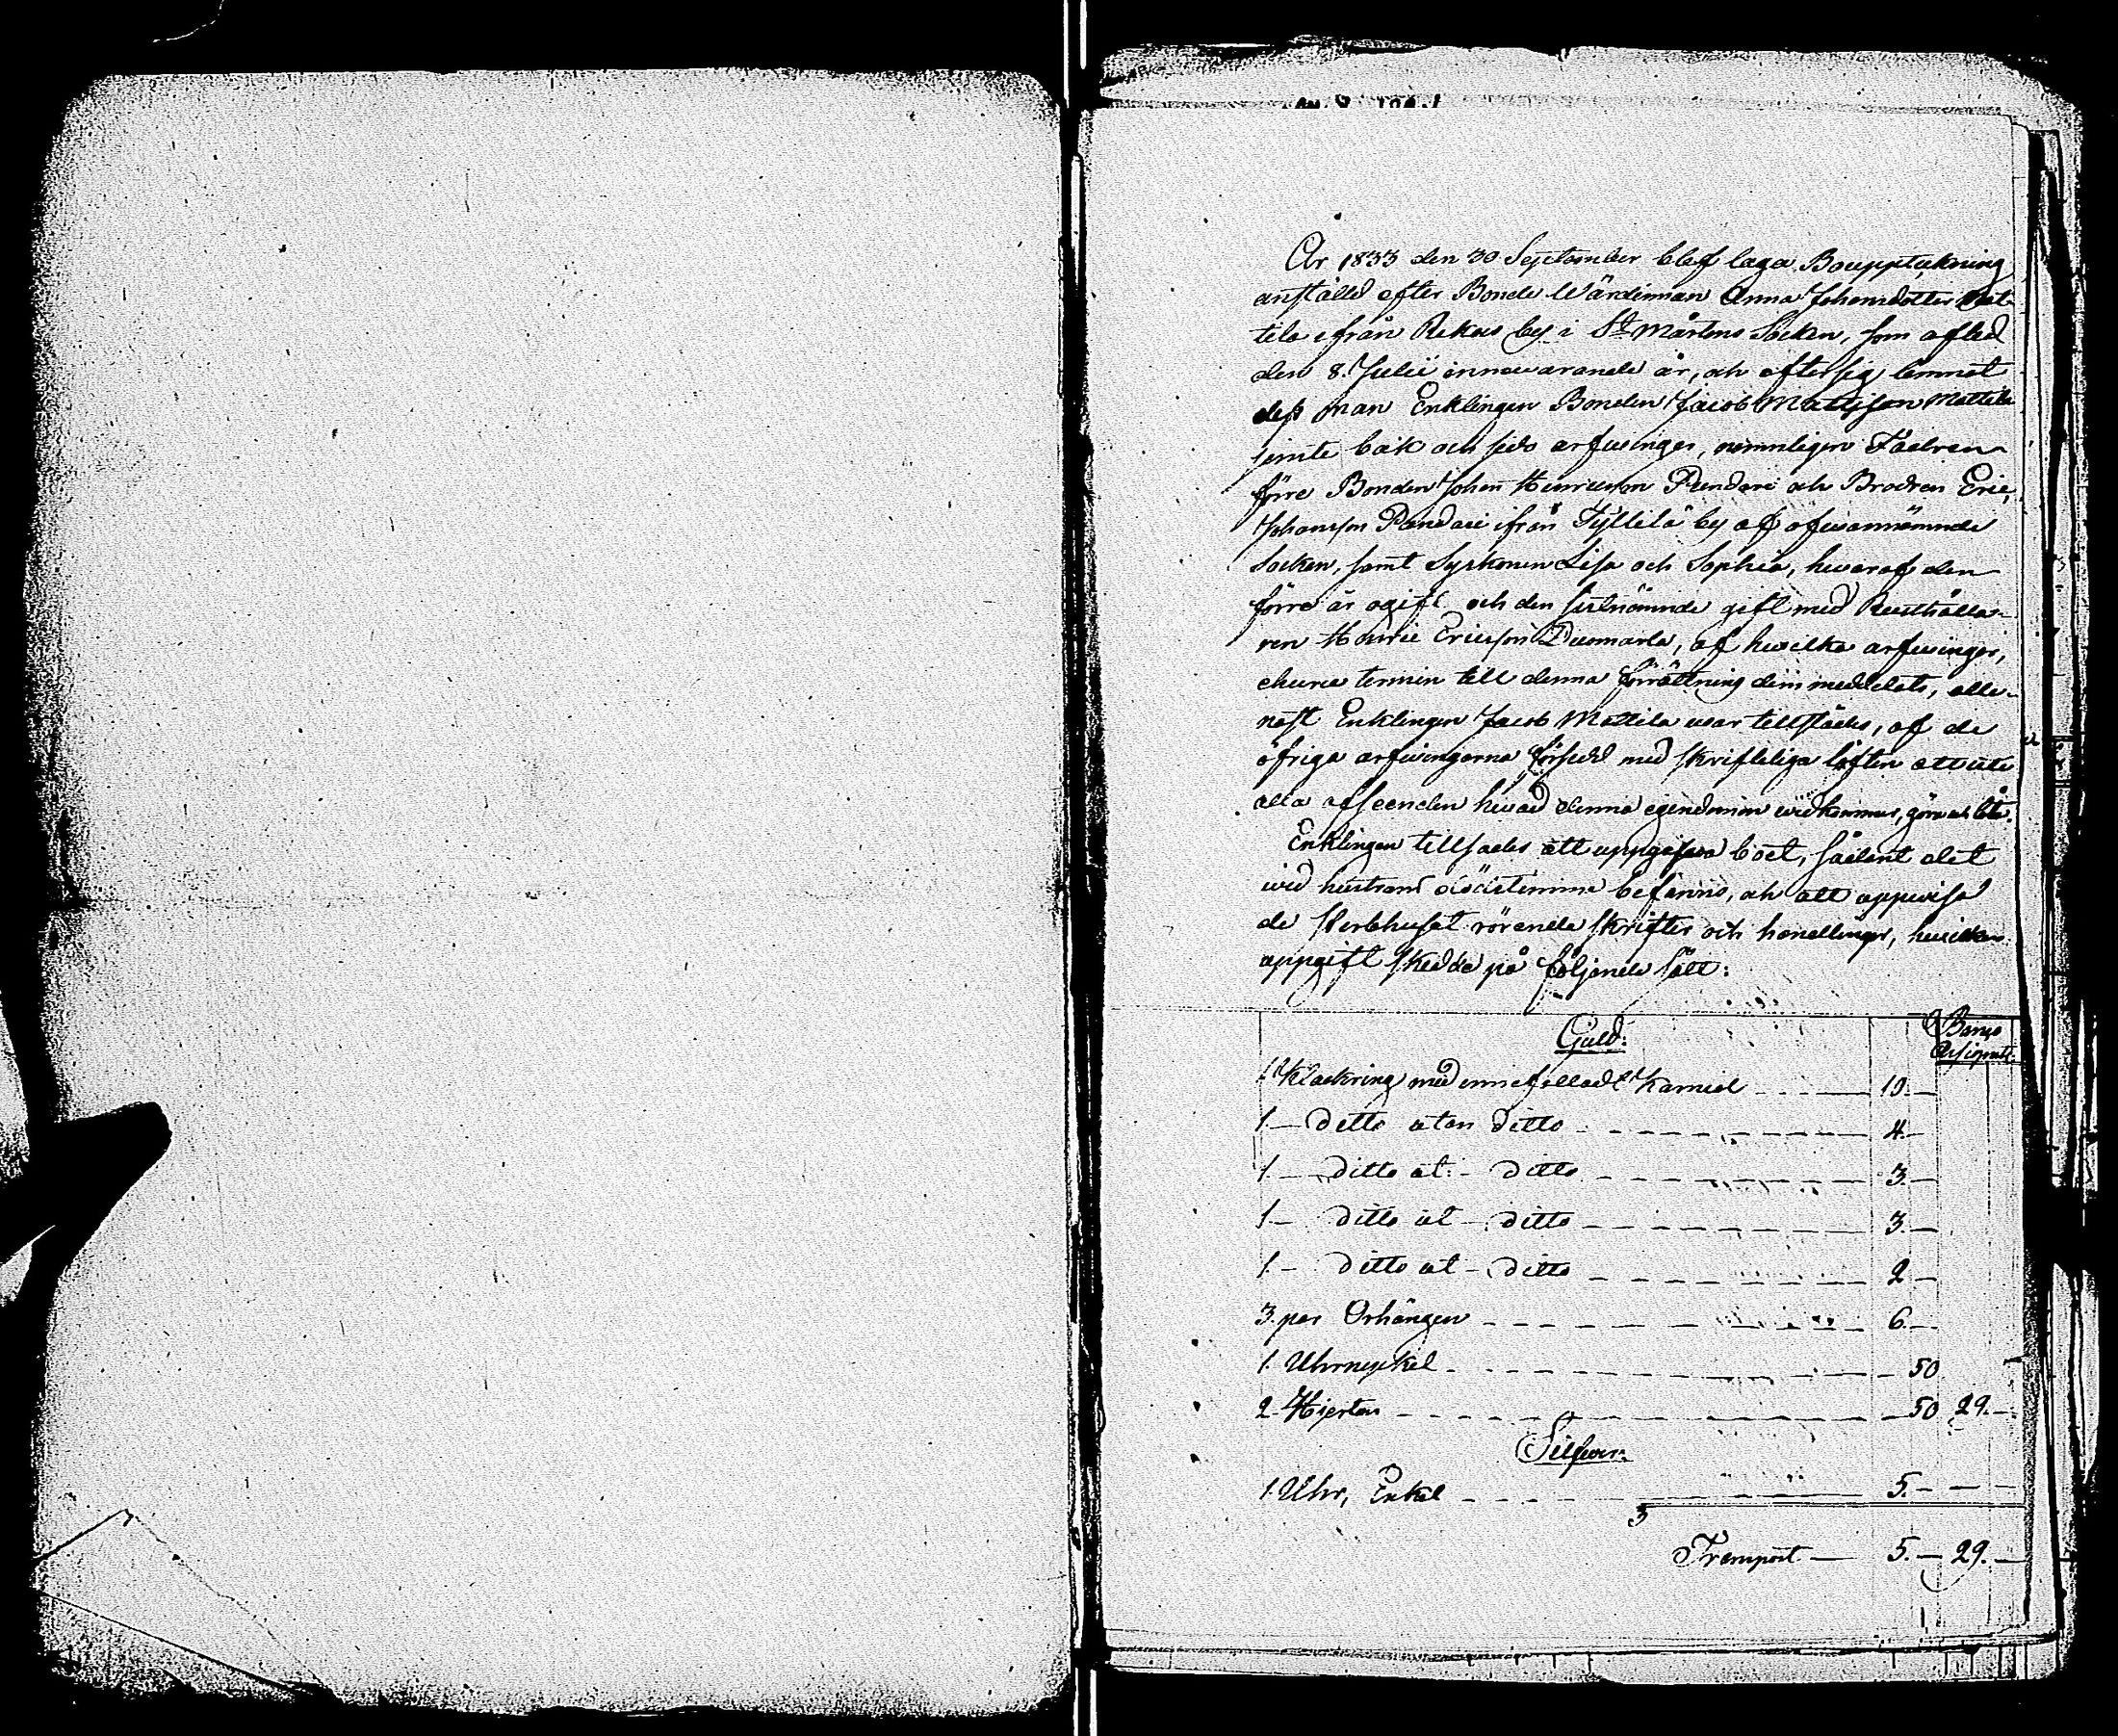 År 1833 den 30 September blef laga Bouppteckning
anstäld efter Bonde Wärdinnan Anna Johansdotter Mat-
tila ifrån Rekus by i S:t Mårtens Socken, som afled
den 8. Julii innewarande år, och efter sig lemnat
dess man Enklingen Bonden Jacob Mattsson Mattila
jemte bak och sido arfwingar, nemnligen Fadren
förre Bonden Johan Henricsson Pandari och Brodren Eric
Johansson Pandari ifrån Tyllilä by af ofwannämnde
Socken, samt Syskonen Lisa och Sophia, hwaraf den
förra är ogift och den sistnämnde gift med Rusthålla-
ren Henric Ericsson, af hwilka arfwingar,
ehuru termin till denna förrättning dem meddelats, alle-
nast Enklingen Jacob Mattila war tillstädes, af de
öfriga arfwingarna försedd med skriftliga löften att uti
alla afseenden hwad denna egendomen widkommer, göra och låta.
Enklingen tillsades att uppgifwa boet, sådant det
wid hustruns dödstimma befanns, och att uppwisa
de Sterbhuset rörande skrifter och handlingar, hwilken
uppgift skedde på följande sätt:
Guld: Banco
Assignat:
1 Klackring med innefattadt Karniel 10.—
1.— Ditto utan Ditto 4.—
1.— ditto ut.— ditto 3.—
1.— ditto ut— ditto 3.—
1.— ditto ut— ditto 2—
3. par Örhängen 6.—
1. Uhrnyckel 50
2 Hjertan 50 29.—
Silfwer:
1. Uhr, Enkel 5.—
Transport — 5.— 29.—